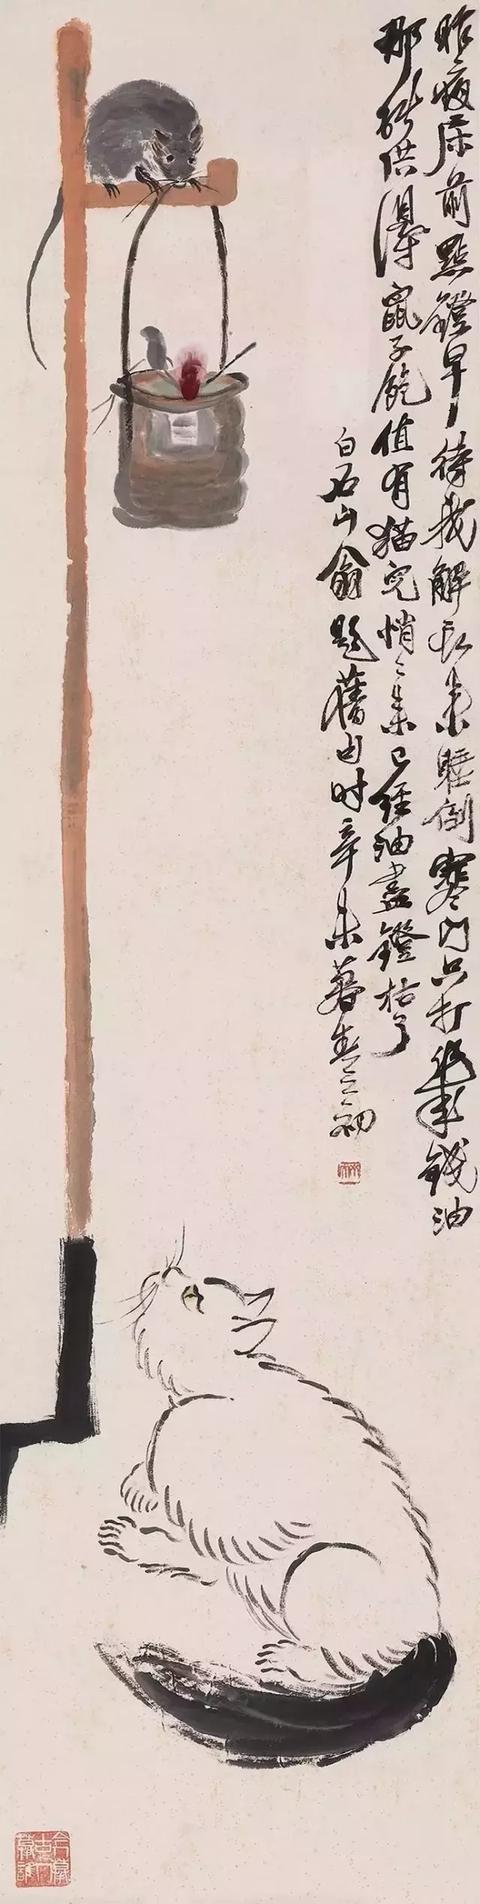 昨夜床前點鐙早待我解衣來睡倒寒門只打錢油
那能供得鼠子飽值有猫兒悄〻來已經油盡鐙枯了
白石山翁題舊句時辛未暮春之初